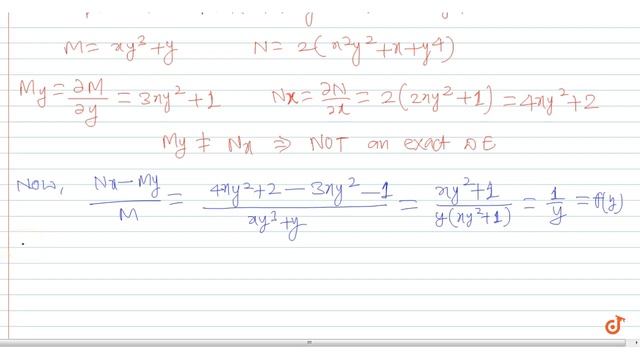 M = xy³+y N = 2(x²y²+x+y4)
My = ∂M/∂y = 3xy²+1 Nx = ∂N/∂x = 2(2xy²+1) = 4xy²+2
My ≠ Nx ⇒ NOT an exact DE
Now, (Nx-My)/M = (4xy²+2-3xy²-1)/(xy³+y) = (xy²+1)/(y(xy²+1)) = 1/y = f(y)